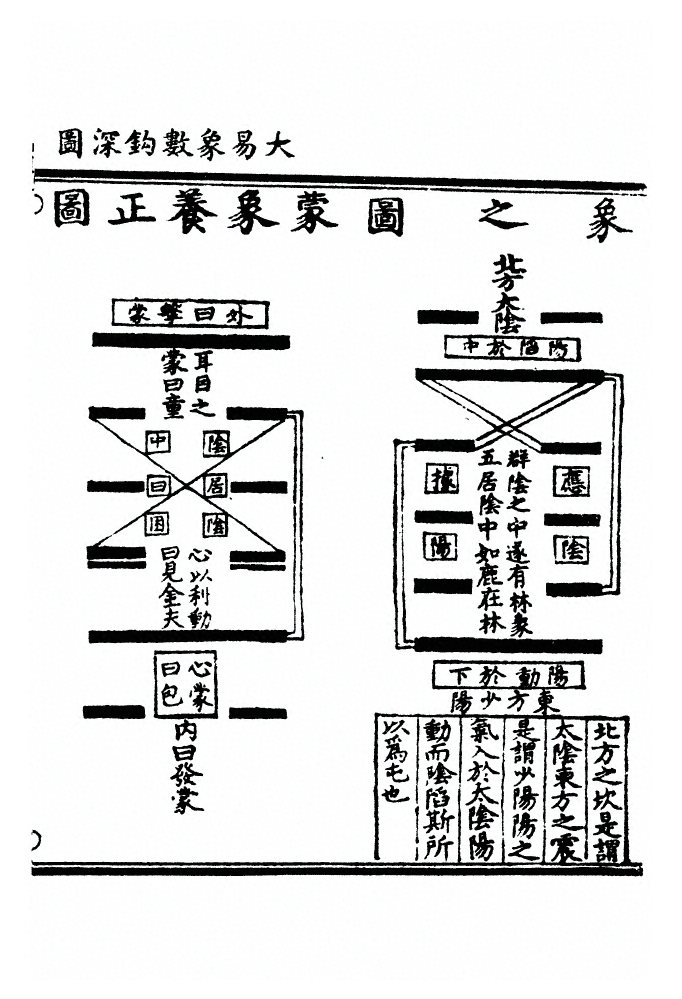 大易象數鈎深圖
象之圖
北方太陰
陽陷於中
應
陰
據
陽
群陰之中遂有林象
五居陰中如鹿在林
陽動於下
東方少陽
北方之坎是謂
太陰東方之震
是謂少陽陽之
氣入於太陰陽
動而陰陷斯所
以爲屯也
蒙象養正圖
外曰擊蒙
耳目之
蒙曰童
陰居陰
中曰困
心以利動
曰見金夫
心蒙
曰包
內曰發蒙